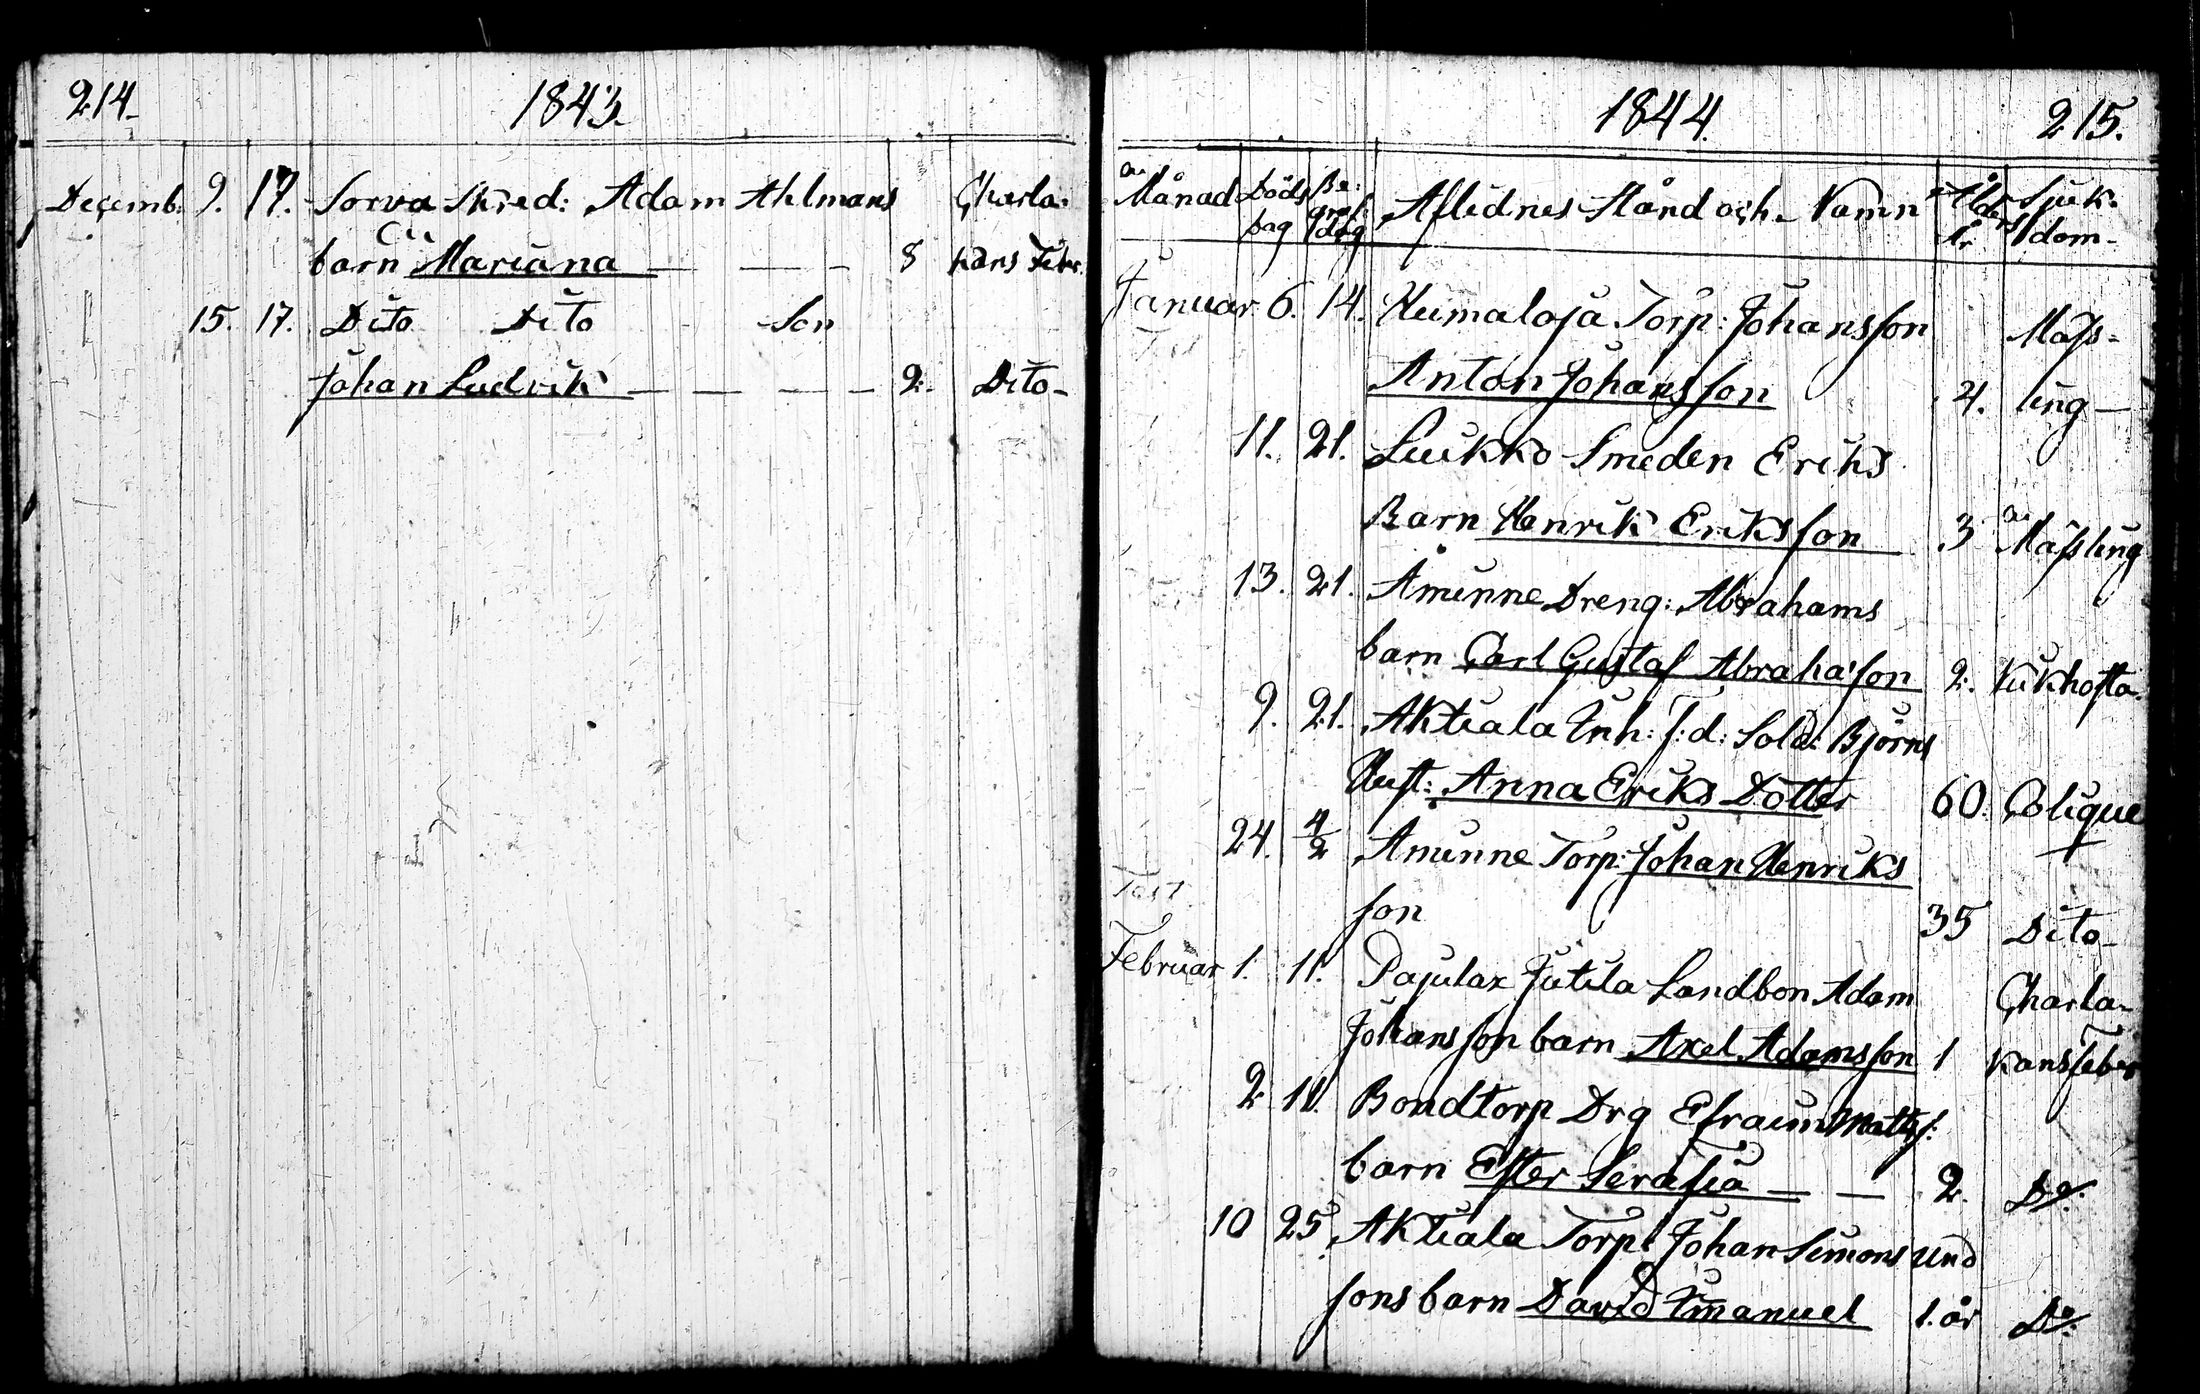 214.
1843.
Decemb. 9. 17. Sorva Skred: Adam Ahlmans Charla-
barn Mariana — — - 8 kans Feber
15. 17. Dito Dito Son
Johan Ludvik — — — — 2. Dito-
1844.
215.
Månad Döds dag Be: graf: dag Aflidnes Stånd och Namn Ålder År Sjuk- dom-
Januar 6. 14. Heimaloja Torp: Johansson Mass-
Anton Johansson 4. ling —
11. 21. Luikko Smeden Eriks
Barn Henrik Eriksson 3 Massling
13. 21. Åminne Dreng: Abrahams
barn Carl Gustaf Abraha'son 2. Kikhosta.
9. 21. Aktiala Inh: f: d: Sold: Björns
Hust: Anna Eriks Dotter 60. Colique
24. 4/2 Aminne Torp: Johan Henriks
son 35 Dito-
Februar 1. 11. Pajulax Jutila Landbon Adam Charla-
Johansson barn Axel Adamsson 1 kansfeber
2 11. Bondtorp Drg Efraim Matts:
barn Ester Serafia — — 2. Do:
10 25. Aktiala Torp: Johan Simons und
sons barn David Emanuel 1. år Do: